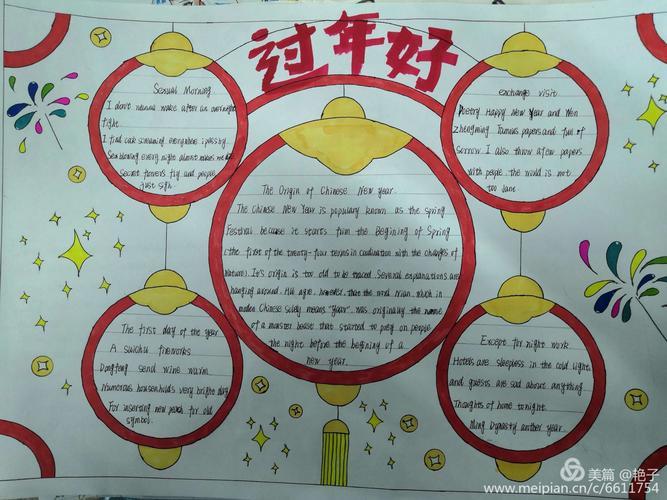 过年好
Sexual Morning
I don't wanna wake after an overnight
fight.
I find cuck screaming everywhere i pass by.
Sea blowing every night almost makes me die
Secret flowers fly and people
just sigh.
exchange visit
Poetry Happy New Year and Wen
Zhengming Tumous papers and full of
sorrow I also throw a few papers
with people the world is not
too Jane
The Origin of Chinese New year
The Chinese New Year is populary known as the spring
Festival because it starts from the Begining of Spring
(the first of the twenty-four terms in coodination with the changes of
Nature). It's origin is too old to be traced. Several explanations are
hanging around. All agre, however, that the word Nian, which in
moden Chinese solely means "Year", was originally the name
of a monster beast that started to prey on people
the night before the beginning of a
new year.
The first day of the year
A suichu fireworks
Dongfeng send wine warm
Numorous households very bright day
For inserting new peach for old
symbol.
Except for night work
Hotels are sleepless in the cold light
and guests are sad about anything
Thoughts of home tonight
Ming Dynasty another year.
美篇 @艳子
www.meipian.cn/c/6611754